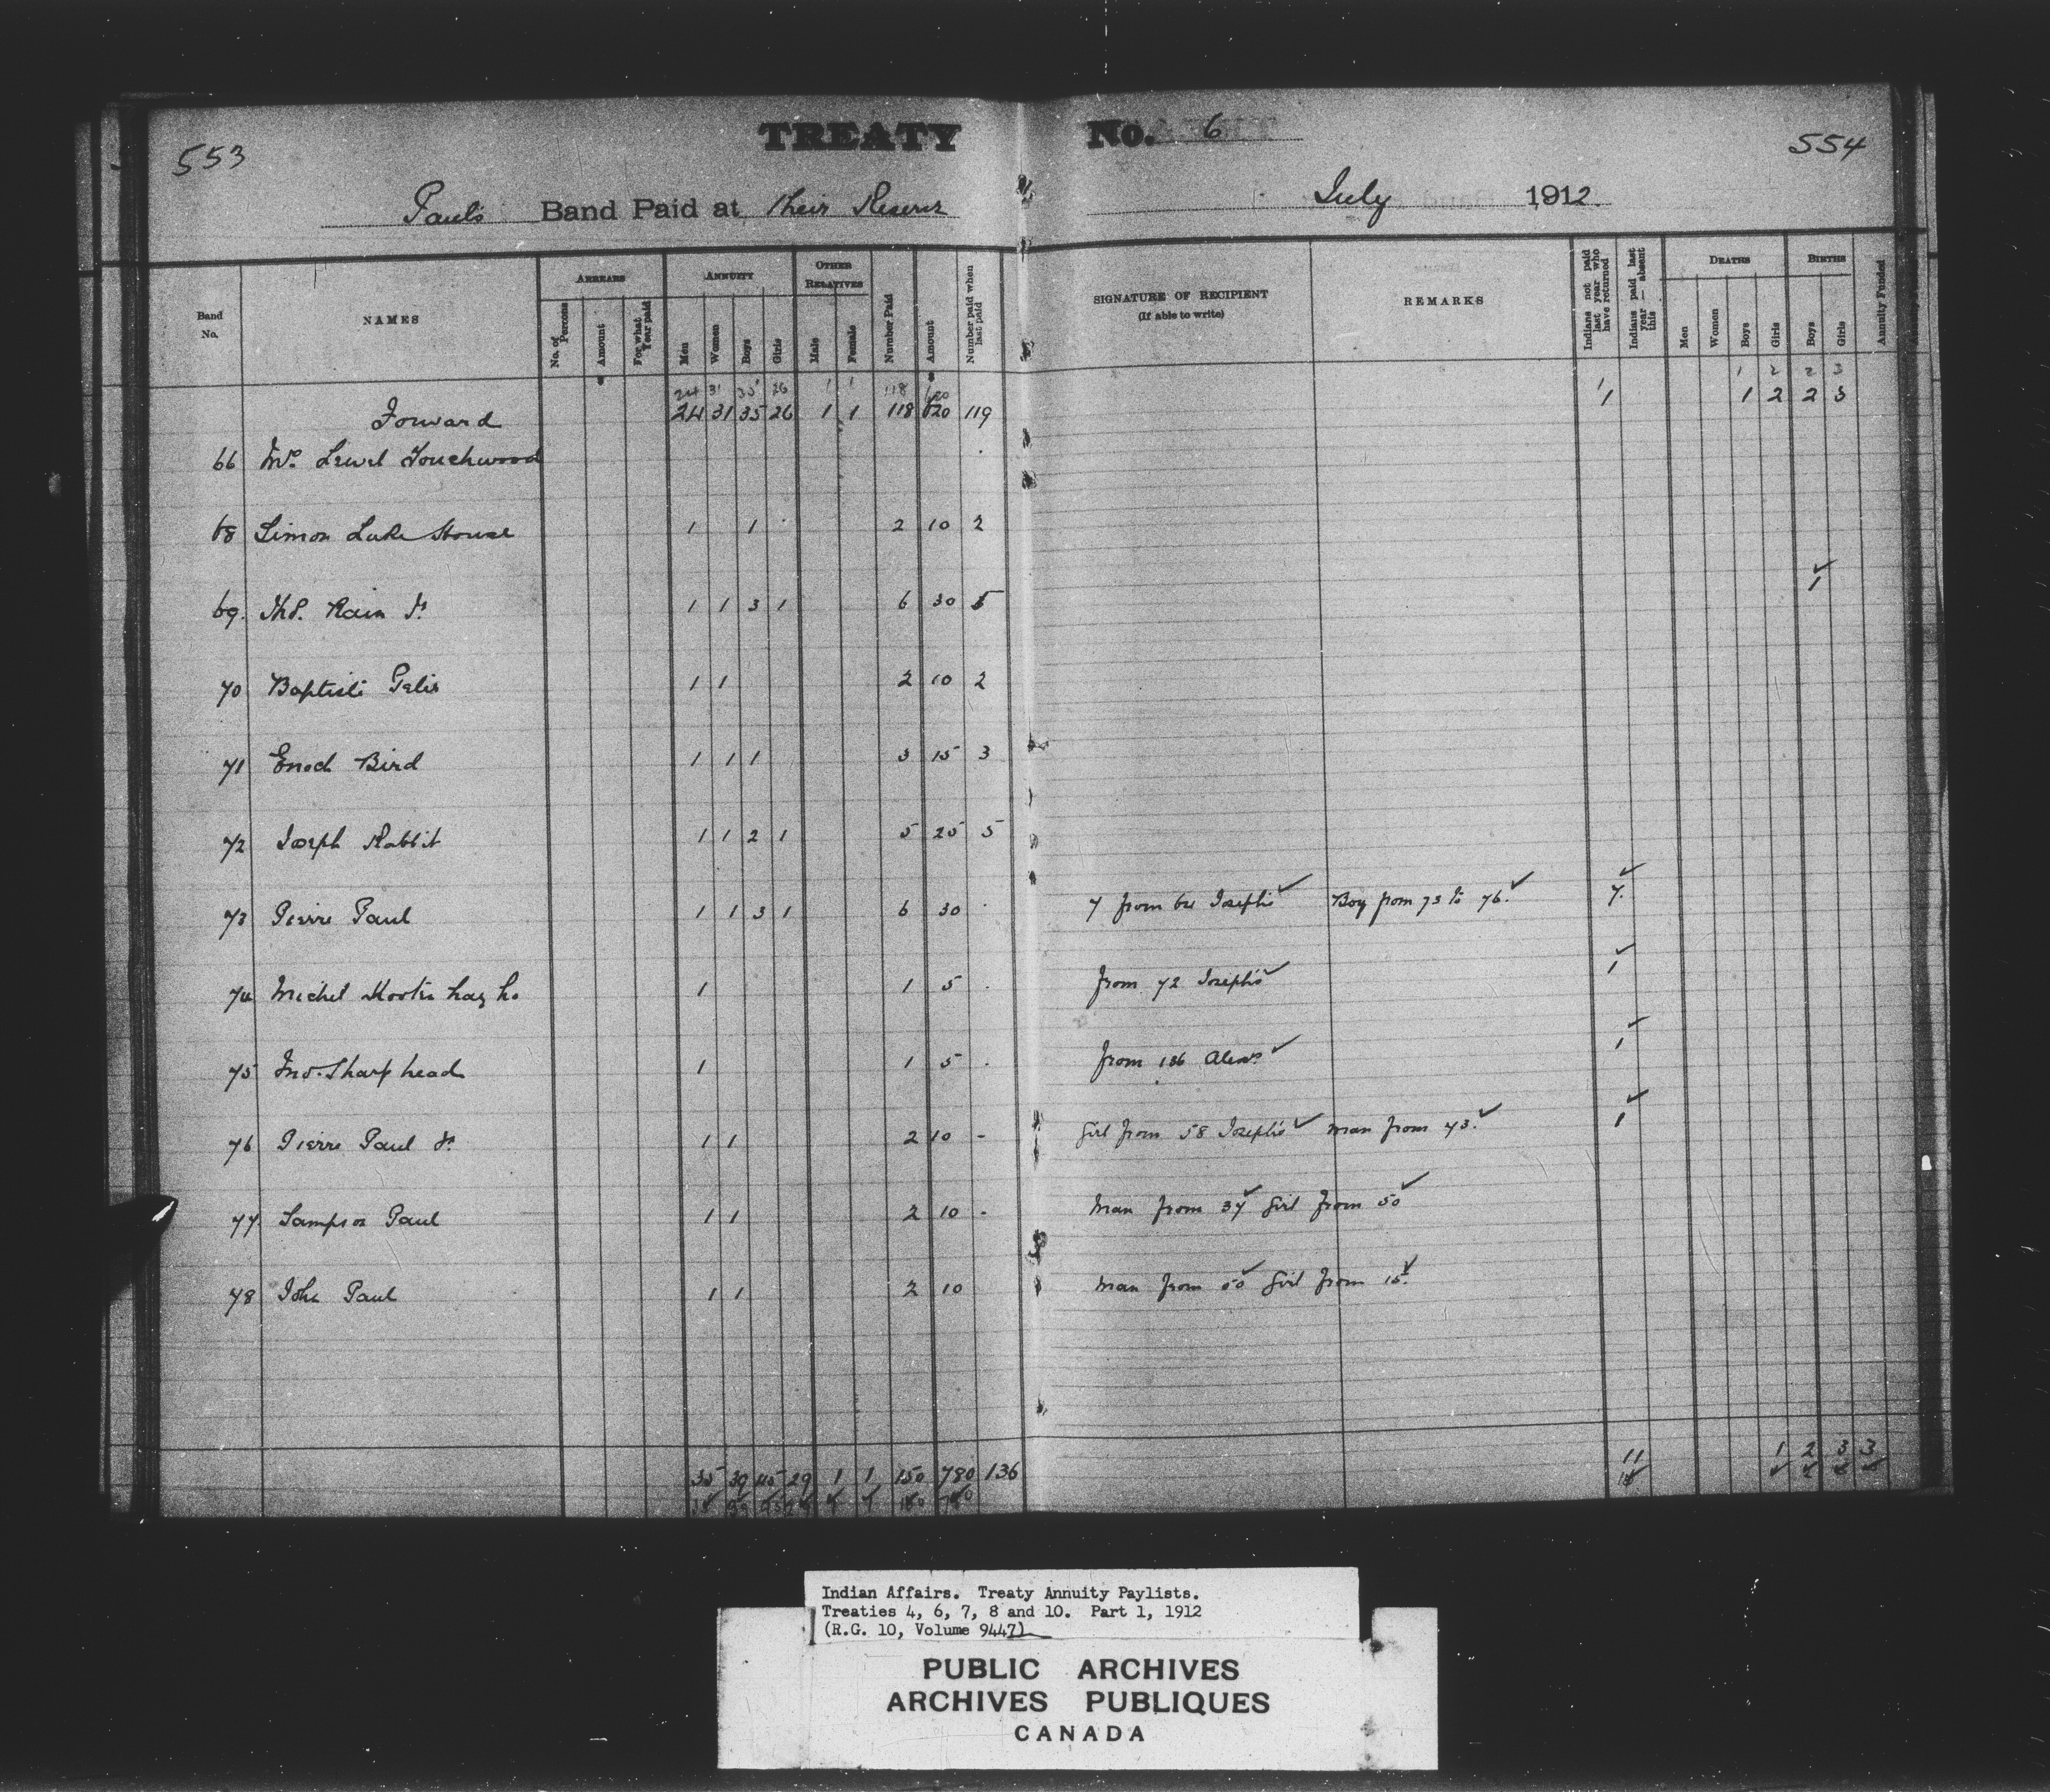 553 TREATY No. 6 554
Paul's Band Paid at their Reserve July 1912.
Band No. NAMES ARREARS No. of Persons Amount For what Year paid ANNUITY Men Women Boys Girls OTHER RELATIVES Male Female Number Paid Amount Number paid when last paid SIGNATURE OF RECIPIENT (If able to write) REMARKS Indians not paid last year who have returned Indians paid last year — absent this DEATHS Men Women Boys Girls BIRTHS Boys Girls Annuity Funded
24 31 35 26 1 1 118 620 1 1 2 2 3
Forward 24 31 35 26 1 1 118 620 119 1 1 2 2 3
66 Mrs. Lewel Touchwood
68 Simon Lake House 1 1 2 10 2
69. Thos. Rain Jr 1 1 3 1 6 30 5 1
70 Baptiste Gelis 1 1 2 10 2
71 Enoch Bird 1 1 1 3 15 3
72 Joseph Rabbit 1 1 2 1 5 25 5
73 Pierre Paul 1 1 3 1 6 30 7 from 64 Joseph's Boy from 73 to 76. 7.
74 Michel 1 1 5 from 72 Joseph's 1
75 Jno. Sharphead 1 1 5 from 136 Alexs 1
76 Pierre Paul Jr 1 1 2 10 - Girl from 58 Joseph's man from 73. 1
77 Sampson Paul 1 1 2 10 - Man from 37 Girl from 50
78 John Paul 1 1 2 10 Man from 50 Girl from 15.
35 39 45 29 1 1 150 780 136 11 1 2 3 3
Indian Affairs. Treaty Annuity Paylists.
Treaties 4, 6, 7, 8 and 10. Part 1, 1912
(R.G. 10, Volume 9447)
PUBLIC ARCHIVES
ARCHIVES PUBLIQUES
CANADA